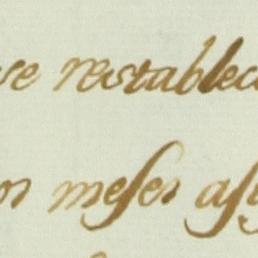 se restablec
os meses asi